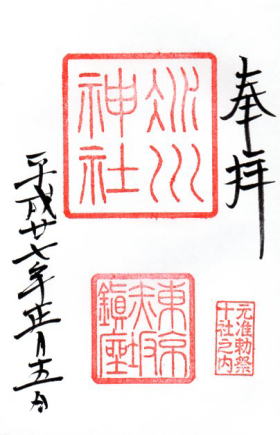 奉拝
元准勅祭
十社之内
氷川
神社
東京
赤坂
鎮座
平成廿七年正月五日